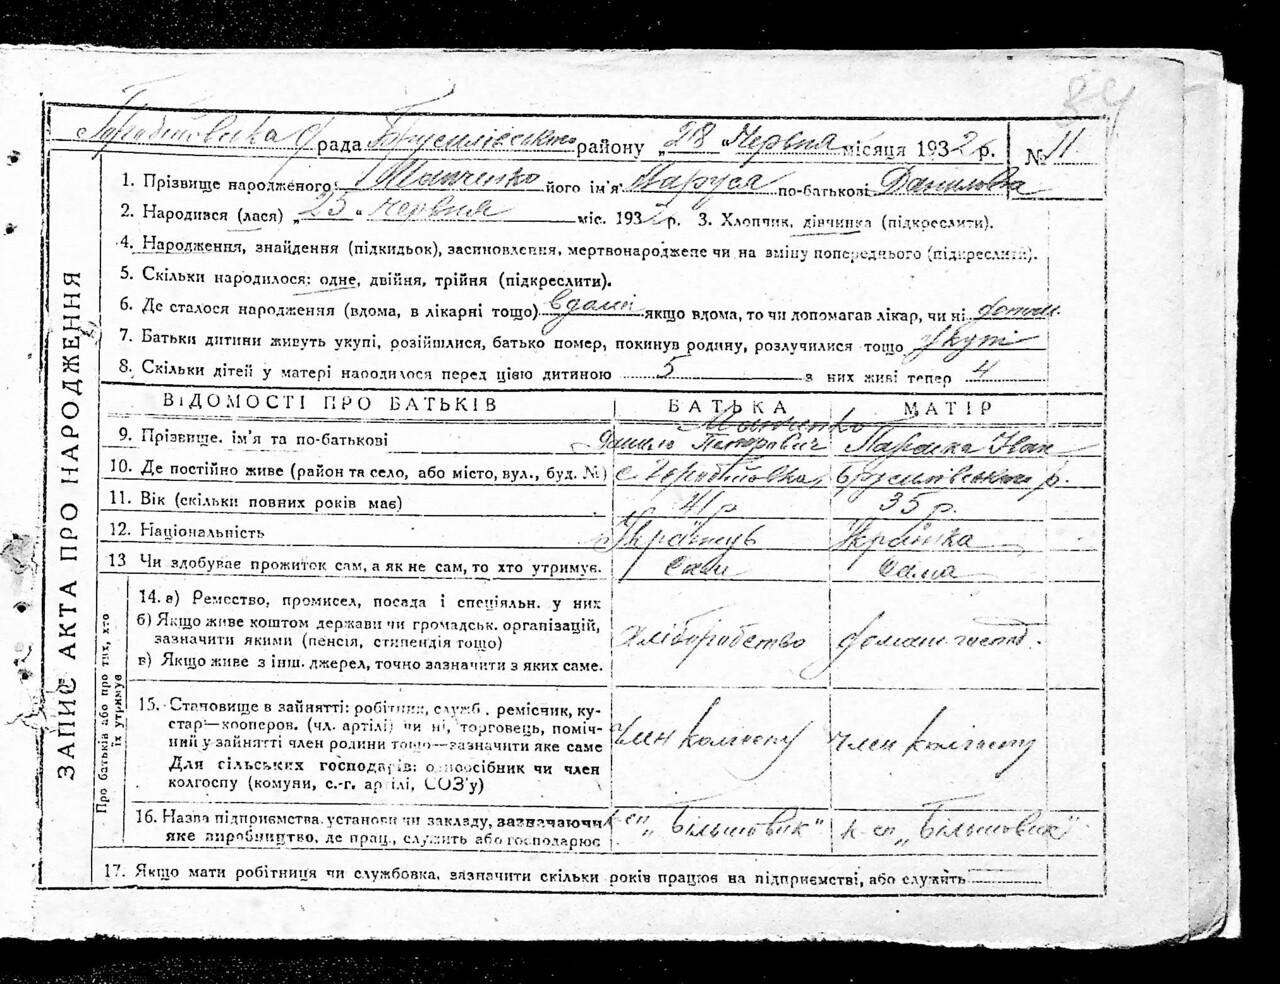 84
рада Брусилівського району „28 Червня місяця 1932 р. № 11
ЗАПИС АКТА ПРО НАРОДЖЕННЯ
1. Прізвище народженого: його ім'я Маруся по-батькові Данилова
2. Народився (лася) „25 „ червня міс. 1932 р. 3. Хлопчик, дівчинка (підкреслити).
4. Народження, знайдення (підкидьок), засиновлення, мертвонароджене чи на зміну попереднього (підкреслити).
5. Скільки народилося: одне, двійня, трійня (підкреслити).
6. Де сталося народження (вдома, в лікарні тощо) вдома якщо вдома, то чи допомагав лікар, чи ні
7. Батьки дитини живуть укупі, розійшлися, батько помер, покинув родину, розлучилися тощо Укупі
8. Скільки дітей у матері народилося перед цією дитиною 5 з них живі тепер 4
ВІДОМОСТІ ПРО БАТЬКІВ БАТЬКА МАТІР
9. Прізвище, ім'я та по-батькові Данило Петрович Параска Іван
10. Де постійно живе (район та село, або місто, вул., буд. №) с Брусилівського р.
11. Вік (скільки повних років має) 41 р 35 р.
12. Національність Українець Українка
13 Чи здобуває прожиток сам, а як не сам, то хто утримує. Сам Сама
Про батьків або про тих, хто їх утримує
14. а) Ремество, промисел, посада і спеціяльн. у них
б) Якщо живе коштом держави чи громадськ. організацій,
зазначити якими (пенсія, стипендія тощо) Хліборобство домашн. господ.
в) Якщо живе з інш. джерел, точно зазначити з яких саме.
15. Становище в зайнятті: робітник, служб., ремісник, ку-
стар—кооперов. (чл. артілі) чи ні, торговець, поміч-
ний у зайнятті член родини тощо—зазначити яке саме член колгоспу член колгоспу
Для сільських господарів: одноосібник чи член
колгоспу (комуни, с.-г. артілі, СОЗ'у)
16. Назва підприємства, установи чи закладу, зазначаючи к-сп „Більшовик" к-сп „Більшовик"
яке виробництво, де прац., служить або господарює
17. Якщо мати робітниця чи службовка, зазначити скільки років працює на підприємстві, або служить